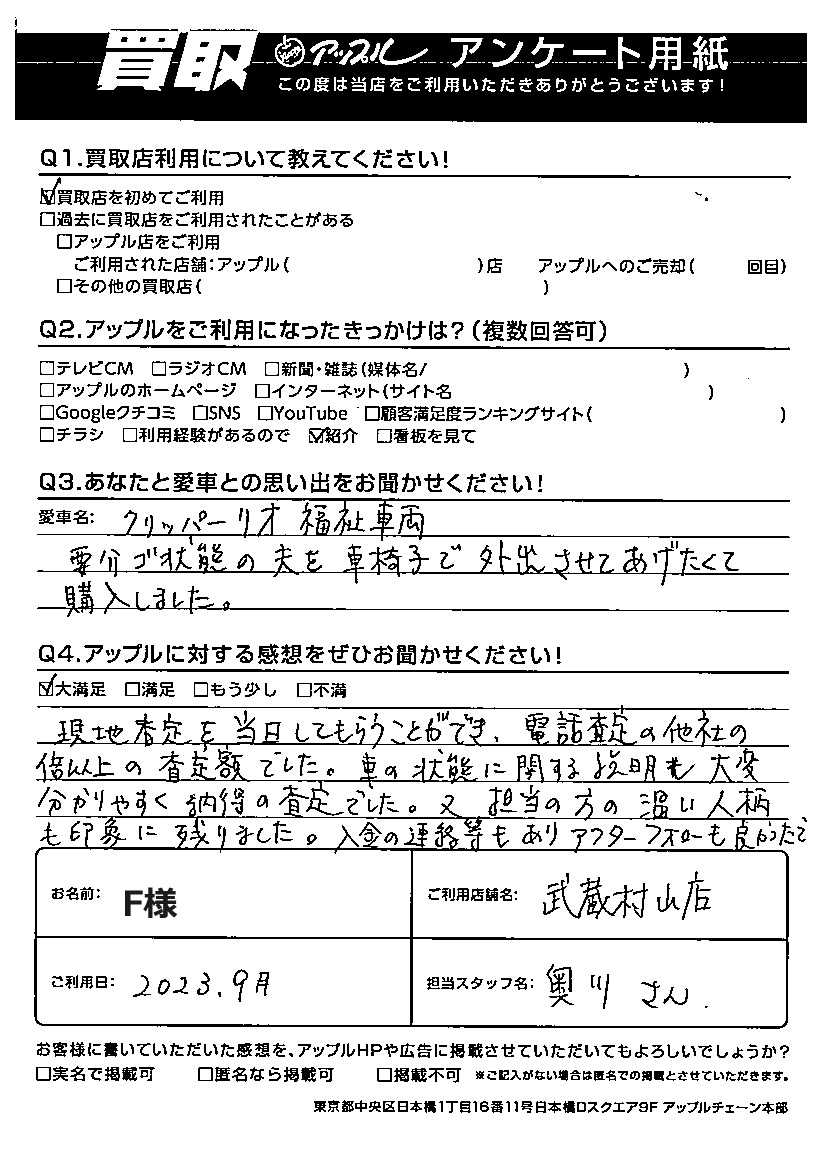 買取 アップル アンケート用紙
この度は当店をご利用いただきありがとうございます!
Q1.買取店利用について教えてください!
☑買取店を初めてご利用
□過去に買取店をご利用されたことがある
□アップル店をご利用
ご利用された店舗:アップル( )店 アップルへのご売却( 回目)
□その他の買取店( )
Q2.アップルをご利用になったきっかけは?(複数回答可)
□テレビCM □ラジオCM □新聞・雑誌(媒体名/ )
□アップルのホームページ □インターネット(サイト名 )
□Googleクチコミ □SNS □YouTube □顧客満足度ランキングサイト( )
□チラシ □利用経験があるので ☑紹介 □看板を見て
Q3.あなたと愛車との思い出をお聞かせください!
愛車名: クリッパーリオ 福祉車両
要介ゴ状態の夫を車椅子で外出させてあげたくて
購入しました。
Q4.アップルに対する感想をぜひお聞かせください!
☑大満足 □満足 □もう少し □不満
現地査定を当日してもらうことができ、電話査定の他社の
倍以上の査定額でした。車の状態に関する説明も大変
分かりやすく納得の査定でした。又担当の方の温い人柄
も印象に残りました。入金の連絡等もありアフターフォローも良かったで
お名前: F様 ご利用店舗名: 武蔵村山店
ご利用日: 2023.9月 担当スタッフ名: 奥川 さん.
お客様に書いていただいた感想を、アップルHPや広告に掲載させていただいてもよろしいでしょうか?
□実名で掲載可 □匿名なら掲載可 □掲載不可 ※ご記入がない場合は匿名での掲載とさせていただきます。
東京都中央区日本橋1丁目16番11号日本橋Dスクエア9F アップルチェーン本部